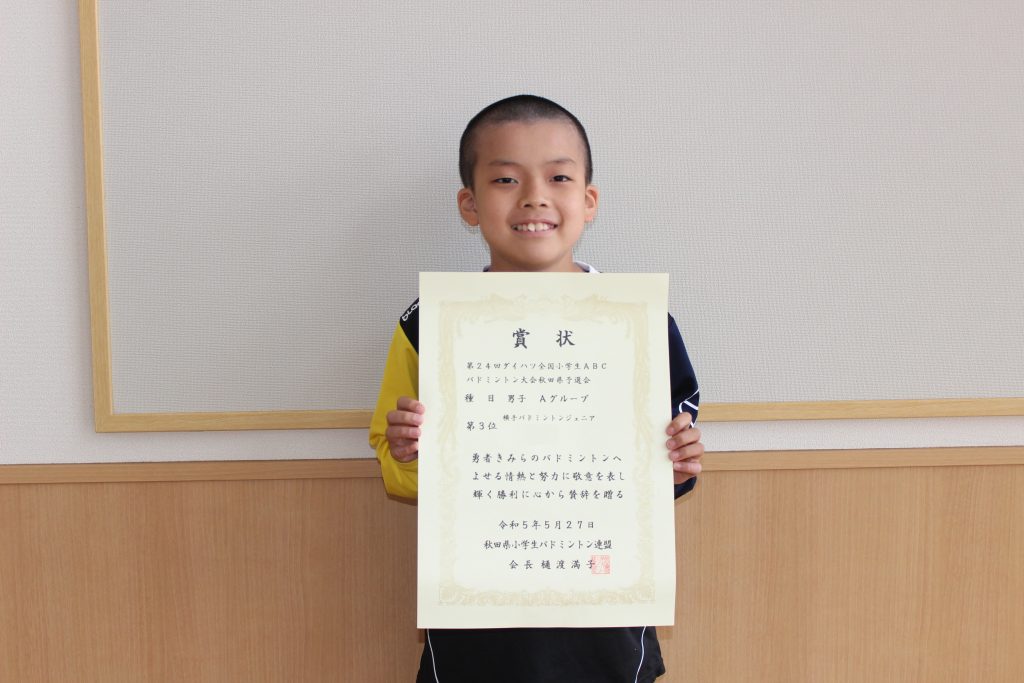 賞状
第24回ダイハツ全国小学生ABC
バドミントン大会秋田県予選会
種目 男子 Aグループ
横手バドミントンジュニア
第3位
勇者きみらのバドミントンへ
よせる情熱と努力に敬意を表し
輝く勝利に心から賛辞を贈る
令和5年5月27日
秋田県小学生バドミントン連盟
会長 樋渡満子